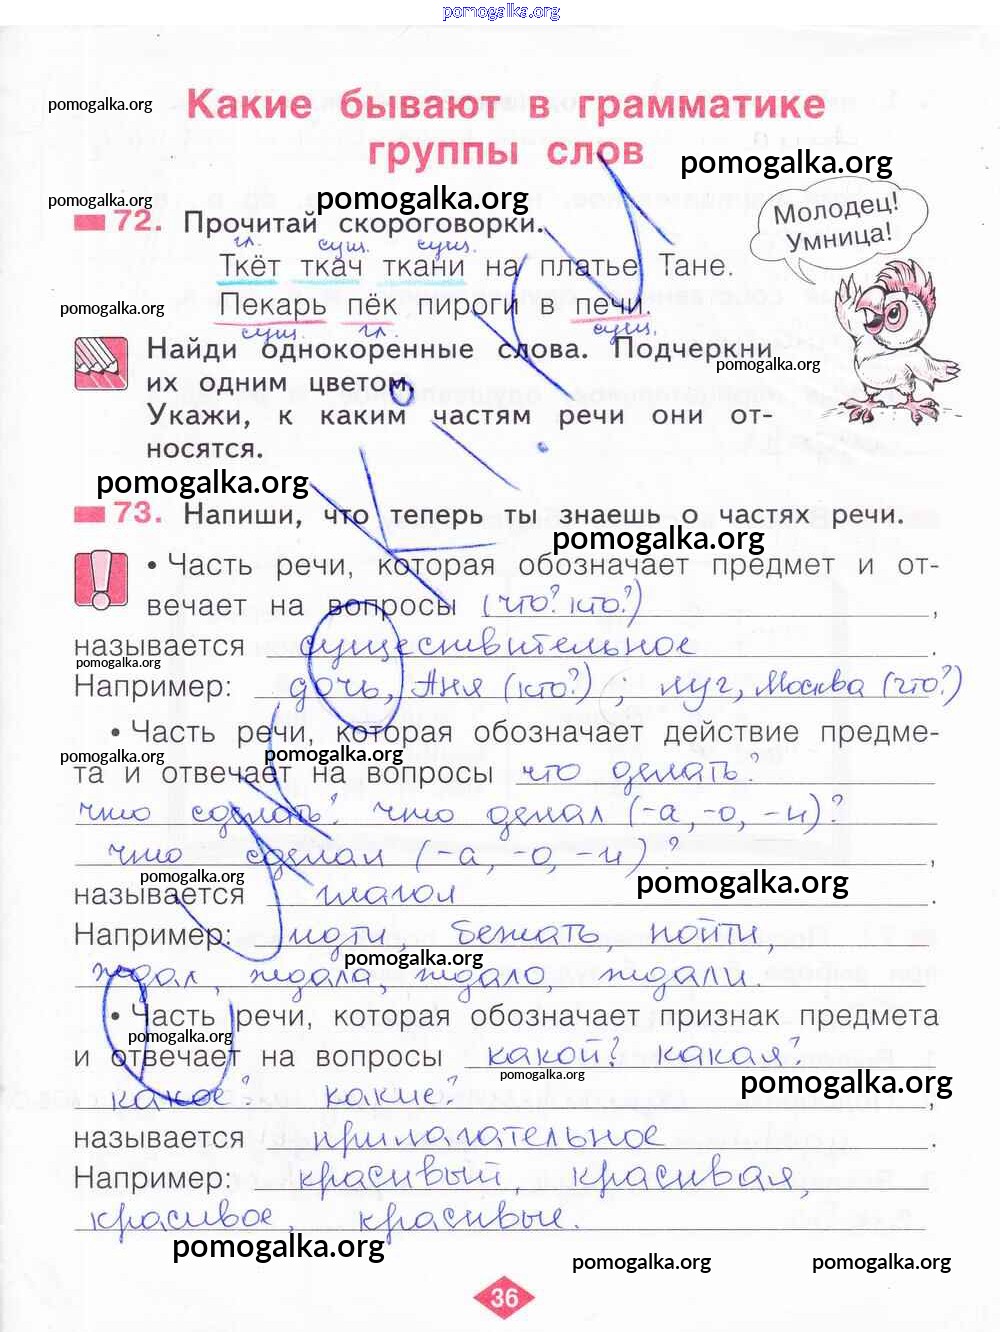 pomogalka.org
Какие бывают в грамматике
pomogalka.org
группы слов
pomogalka.org
pomogalka.org
pomogalka.org
Молодец!
Умница!
72. Прочитай скороговорки.
гл. сущ. сущ.
Ткёт ткач ткани на платье Тане.
pomogalka.org
pomogalka.org
Пекарь пёк пироги в печи.
сущ. гл. сущ.
Найди однокоренные слова. Подчеркни
pomogalka.org
их одним цветом.
Укажи, к каким частям речи они от-
носятся.
pomogalka.org
73. Напиши, что теперь ты знаешь о частях речи.
pomogalka.org
• Часть речи, которая обозначает предмет и от-
вечает на вопросы (что? кто?),
называется существительное.
pomogalka.org
Например: дочь, Аня (кто?); луг, Москва (что?)
• Часть речи, которая обозначает действие предме-
pomogalka.org pomogalka.org pomogalka.org
та и отвечает на вопросы что делать?
что сделать? что делал (-а, -о, -и)?
что сделал (-а, -о, -и)?,
pomogalka.org pomogalka.org
называется глагол.
Например: идти, бежать, пойти,
pomogalka.org
ждал, ждала, ждало, ждали.
• Часть речи, которая обозначает признак предмета
pomogalka.org
и отвечает на вопросы какой? какая?
pomogalka.org pomogalka.org
какое? какие?,
называется прилагательное.
Например: красивый, красивая,
красивое, красивые.
pomogalka.org
pomogalka.org pomogalka.org
36
УROKI.KY